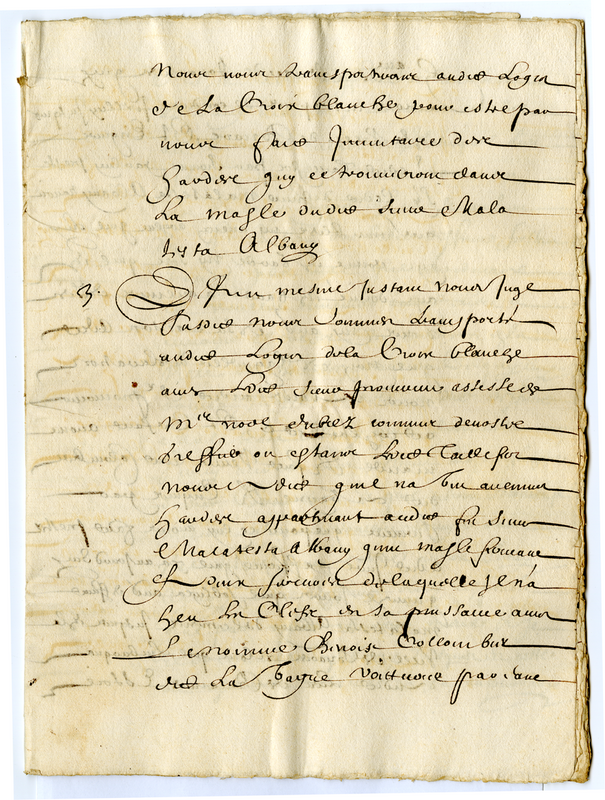 nous nous transportions audit Logis
de La Croix blanche pour estre par
nous faict Inventaire des
hardes quy se trouveront dans
La malle dudit sieur Mala
testa Albany
3. Dun mesme Instant nous Juge
susdit nous sommes transporté
audit Logis de la Croix blanche
avec Ledit sieur procureur assisté de
Mre noel commis de nostre
greffe ou estant Ledit Taillefer
nous a dict quil na veu aucunes
hardes appartenant audit feu sieur
Malatesta Albany quune malle fermant
de laquelle Il n'a
heu La Clefz en sa puissance avec
Le nomme Benoist Collombet
dit La voitture par